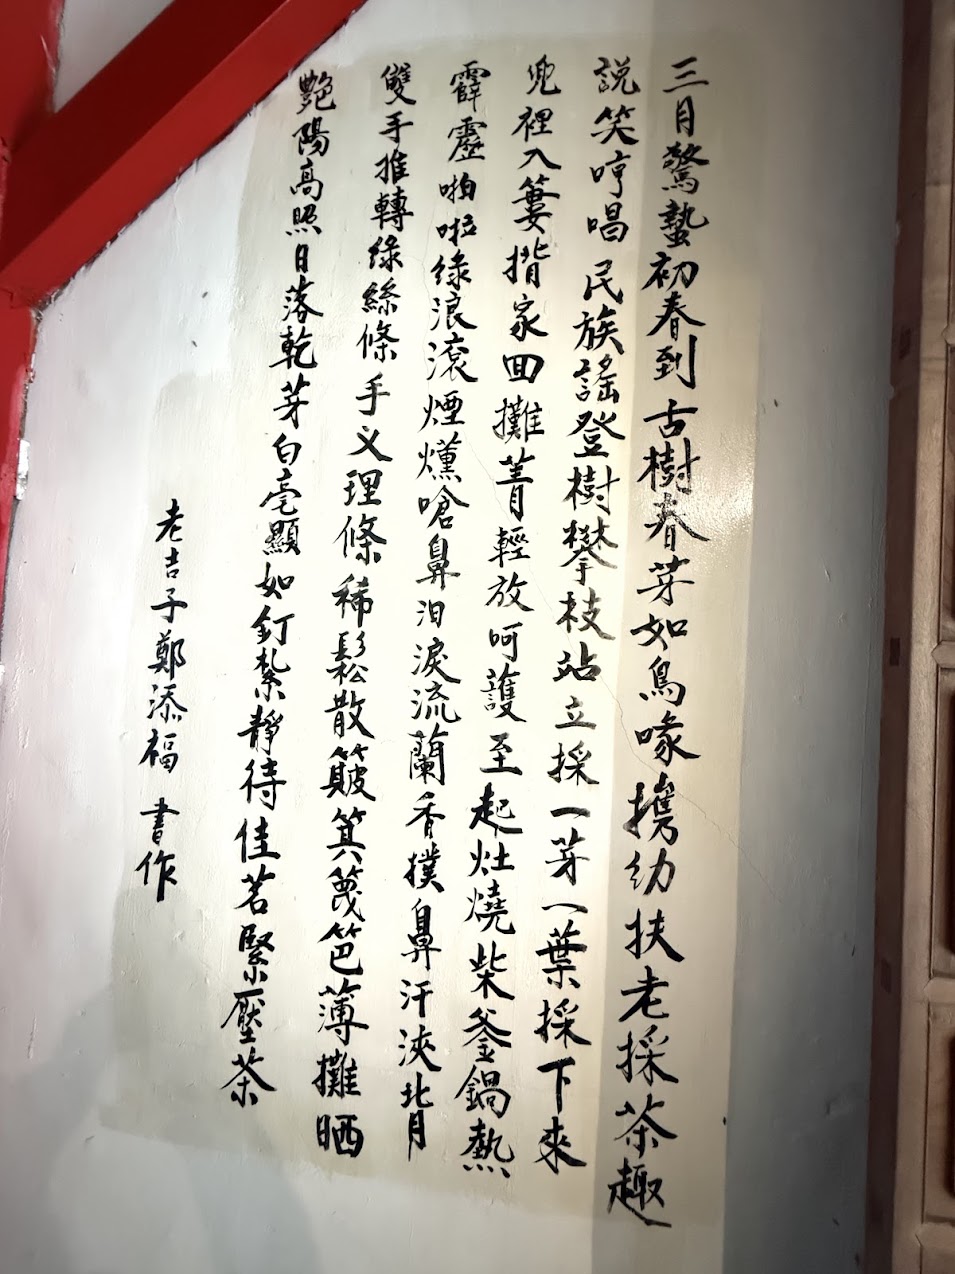 三月驚蟄初春到古樹春芽如鳥喙攜幼扶老採茶趣
説笑哼唱民族謠登樹攀枝站立採一芽一葉採下來
兜裡入簍揹家回攤菁輕放呵護至起灶燒柴釜鍋熱
霹靂啪啦綠浪滾煙燻嗆鼻泪淚流蘭香撲鼻汗浹背
雙手推轉綠絲條手义理條稀鬆散簸箕篾笆薄攤晒
艷陽高照日落乾芽白毫顯如釘紮靜待佳茗緊壓茶
老吉子鄭添福 書作